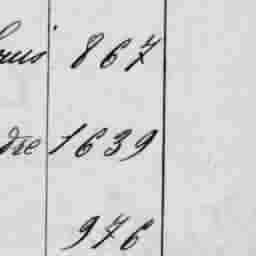 867
dre 1639
976